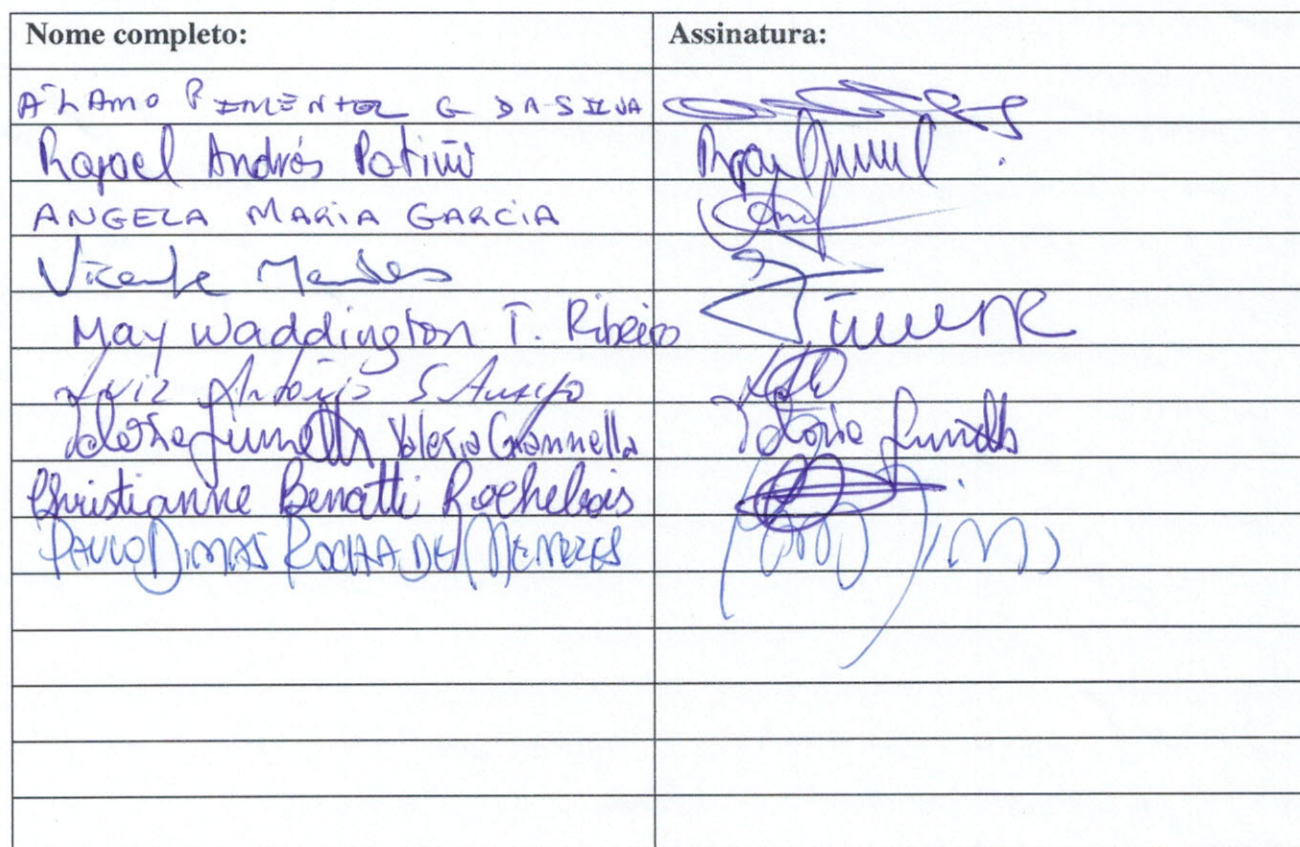 Nome completo: Assinatura:
ÁLAMO PIMENTEL G DA SILVA
Rafael Andrés Patiño
ANGELA MARIA GARCIA
Vicente Mendes
May Waddington T. Ribeiro
Luiz Antônio S Araujo
Valeria Giannella Valeria Giannella Valeria Giannella
Christianne Benatti Rochebois
PAULO DIMAS ROCHA DE MENEZES